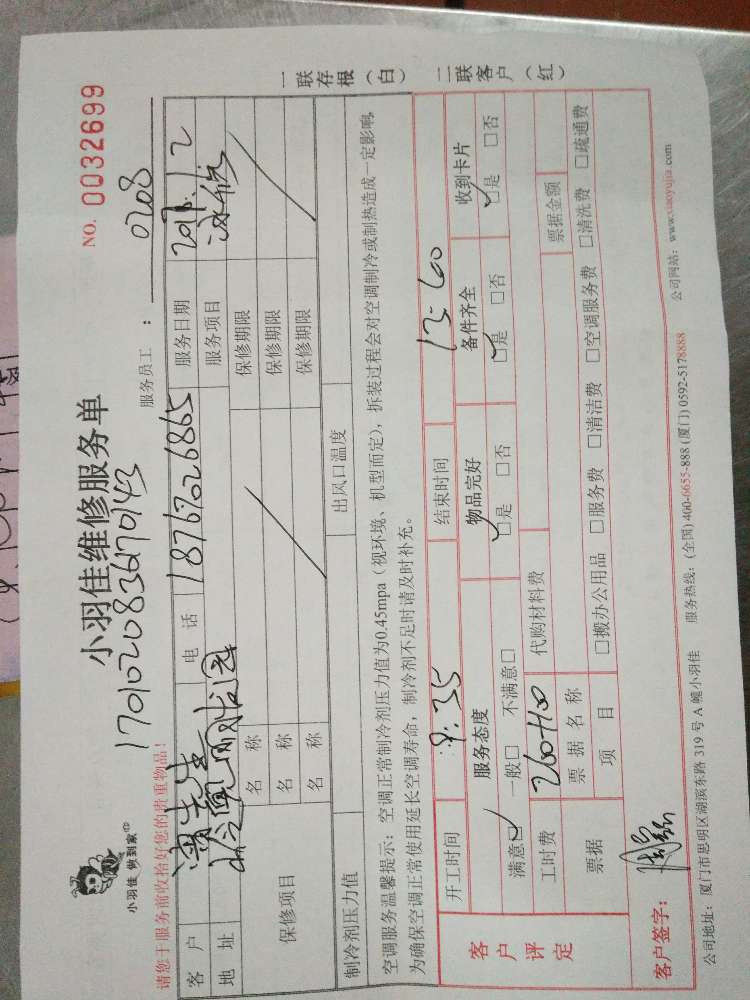 小羽佳 做到家
小羽佳维修服务单
NO. 0032699
170102083670143
请您于服务前收拾好您的贵重物品!
服务员工 : 0208
客户 电话 18767026865 服务日期
地址 服务项目
保修项目 名称 保修期限
名称 保修期限
名称 保修期限
制冷剂压力值 出风口温度
空调服务温馨提示:空调正常制冷剂压力值为0.45mpa(视环境、机型而定),拆装过程会对空调制冷或制热造成一定影响
为确保空调正常使用延长空调寿命,制冷剂不足时请及时补充。
一联存根(白) 二联客户(红)
客户评定
开工时间 9:35 结束时间
服务态度 物品完好 备件齐全 收到卡片
满意□ 一般□ 不满意□ □是 □否 □是 □否 □是 □否
工时费 260+100 代购材料费
票据 票据名称 票据金额
项目 □搬办公用品 □服务费 □清洁费 □空调服务费 □清洗费 □疏通费
客户签字:
公司地址:厦门市思明区湖滨东路 319 号 A 幢小羽佳 服务热线:(全国) 400-6655-888 (厦门) 0592-5178888 公司网站:www.xiaoyujia.com